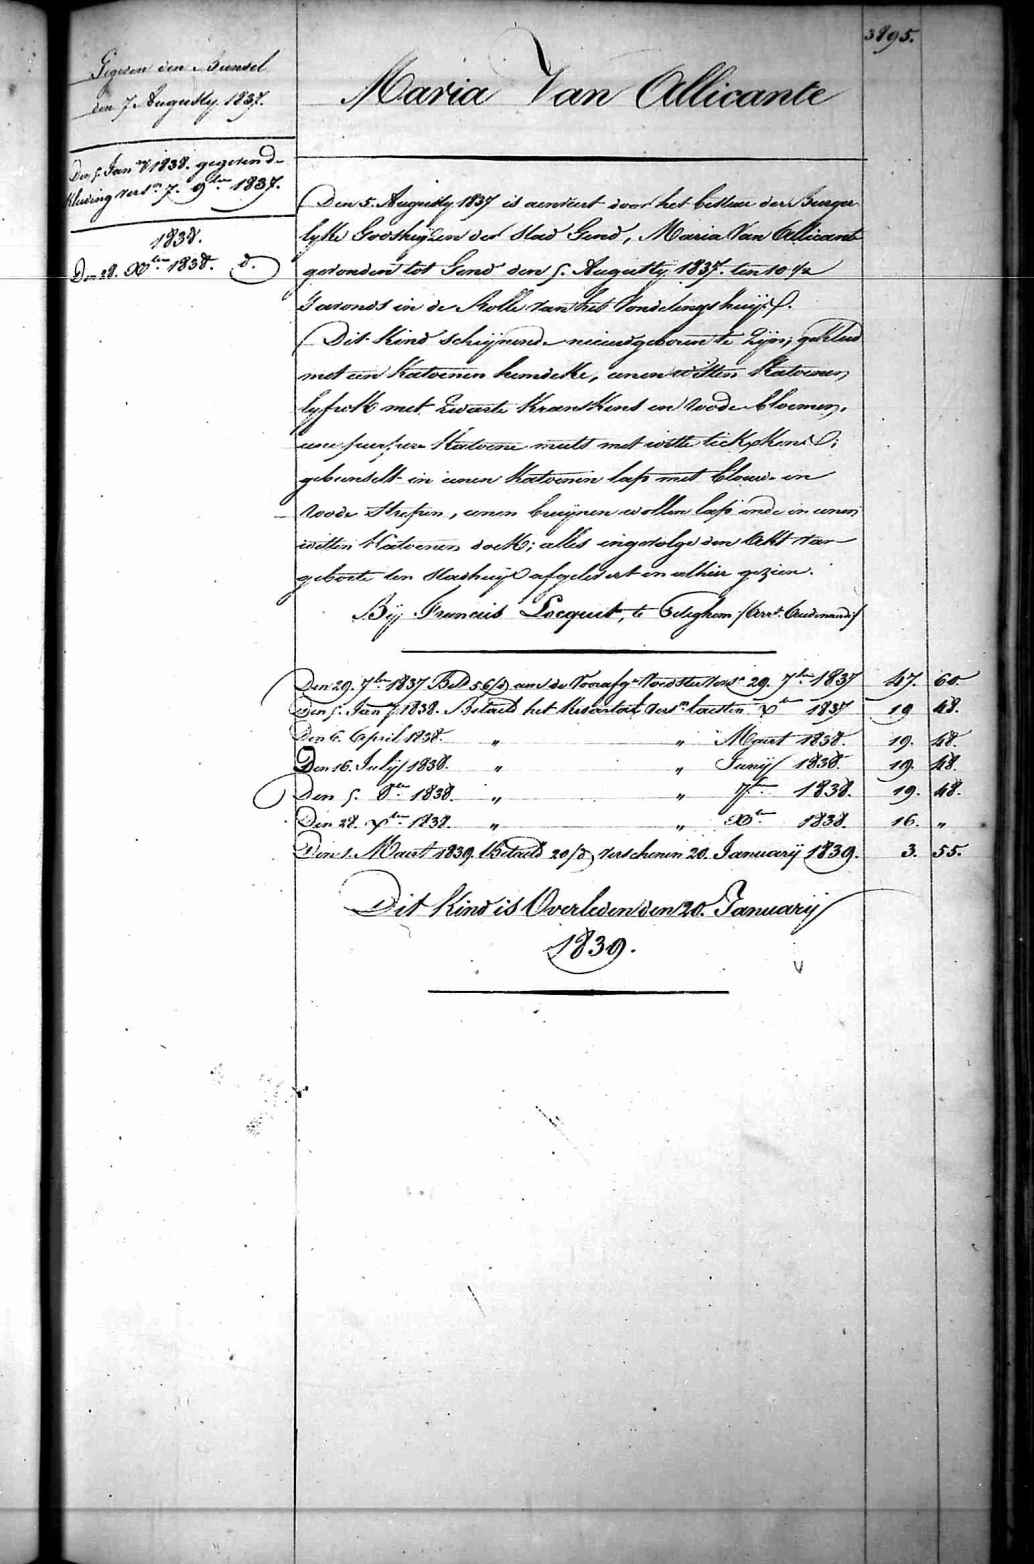 3895.
Gegeven een Bunsel
den 7 Augusty 1837.
Den 5 Jan.ry 1838. gegeven de
kleeding vers.n 7. 9ber 1837.
1838.
Den 28. Xber 1838. d.
Maria Van Allicante
Den 5. Augusty 1837 is aenveert door het bestuer der Burger
lyke Godshuyzen der stad Gend, Maria Van Allicante
gevonden tot Gend den 5. Augusty 1837. ten 10 1/2
s'avonds in de Rolle van het Vondelingshuys.
Dit kind schijnende nieuwdgeboren te zijn, gekleed
met een katoenen hemdeke, eenen witten katoenen
lyfrok met zwarte kranskens en roode bloemen,
eene purpere katoene muts met witte tickskens;
gebunselt in eenen katoenen lap met blouwe en
roode streepen, eenen bruynen wollen lap ende in eenen
witten katoenen doek; alles ingevolge den akt van
geboorte ten stadhuyse afgelevert en alhier gezien.
Bij Francois Locquet, te Edeghem /Arr.t Audenaerde/
Den 29. 7ber 1837 Bet.d 56/d aen de Voorafg.e Voedster vers.n 29. 7ber 1837 47. 60
Den 5. Jan.ry 1838. Betaeld het Kwartael vers.n laesten Xber 1837 19 48.
Den 6. April 1838. " " Maert 1838. 19. 48.
Den 16. July 1838. " " Junij 1838. 19. 48.
Den 5. 8ber 1838. " " 7ber 1838. 19. 48.
Den 28. Xber 1838. " " Xber 1838. 16. "
Den 1. Maert 1839. Betaeld 20/d verschenen 20. Januarij 1839. 3. 55.
Dit kind is Overleden den 20. Januarij
1839.